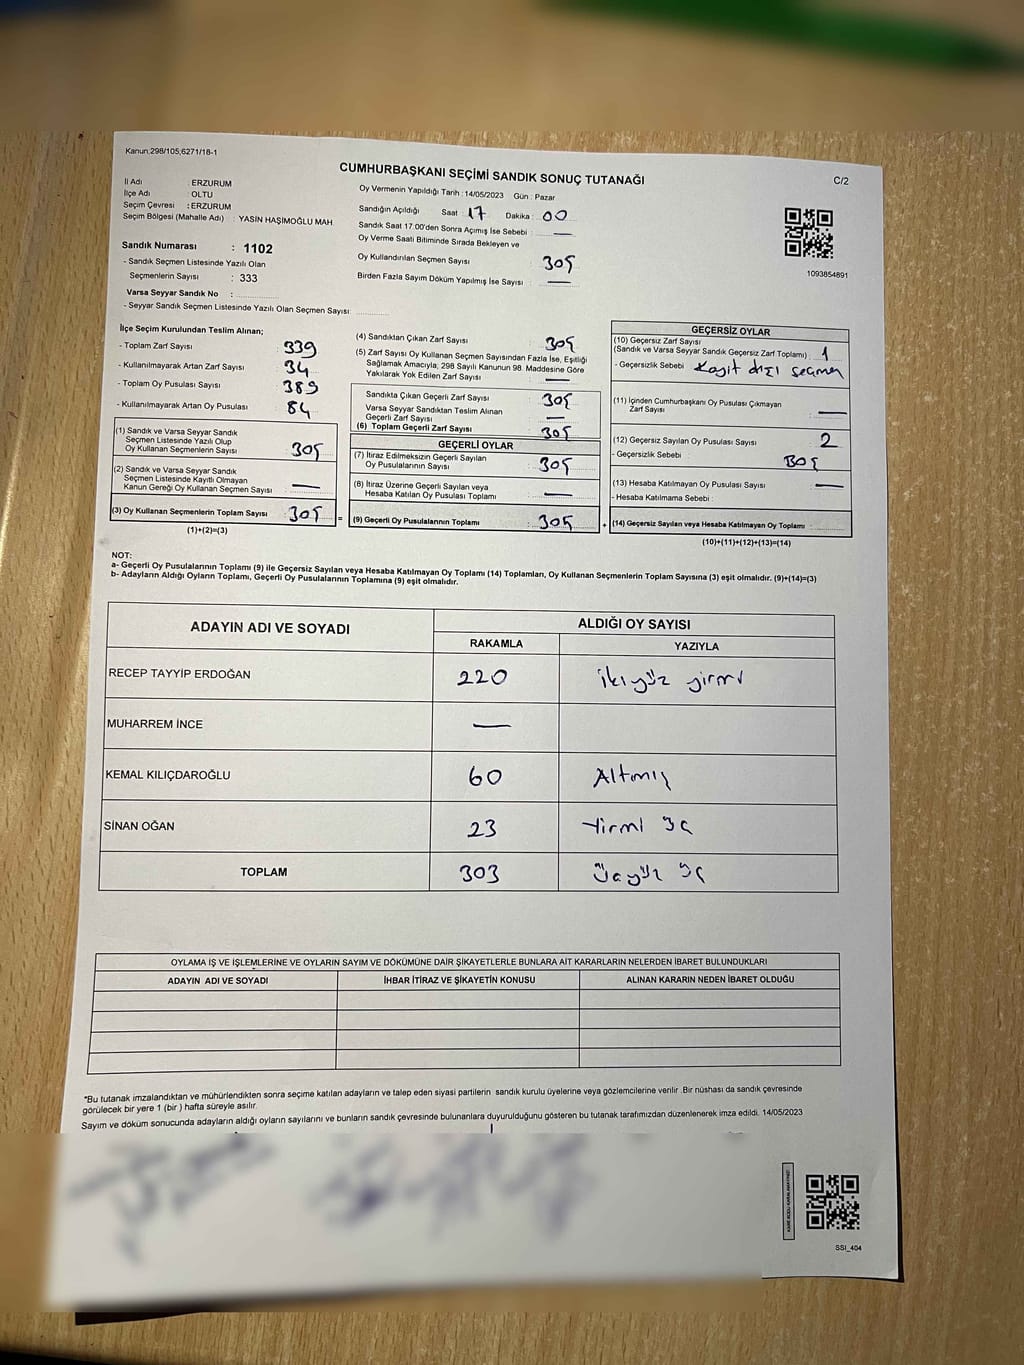 Kanun;298/105;6271/18-1
CUMHURBAŞKANI SEÇİMİ SANDIK SONUÇ TUTANAĞI
C/2
İl Adı : ERZURUM
İlçe Adı : OLTU
Seçim Çevresi : ERZURUM
Seçim Bölgesi (Mahalle Adı) : YASİN HAŞİMOĞLU MAH.
Sandık Numarası : 1102
- Sandık Seçmen Listesinde Yazılı Olan
Seçmenlerin Sayısı : 333
Varsa Seyyar Sandık No :
- Seyyar Sandık Seçmen Listesinde Yazılı Olan Seçmen Sayısı
Oy Vermenin Yapıldığı Tarih : 14/05/2023 Gün : Pazar
Sandığın Açıldığı Saat 17 Dakika : 00
Sandık Saat 17.00'den Sonra Açımış İse Sebebi : —
Oy Verme Saati Bitiminde Sırada Bekleyen ve
Oy Kullandırılan Seçmen Sayısı : 305
Birden Fazla Sayım Döküm Yapılmış İse Sayısı : —
1093854891
İlçe Seçim Kurulundan Teslim Alınan;
- Toplam Zarf Sayısı : 339
- Kullanılmayarak Artan Zarf Sayısı : 34
- Toplam Oy Pusulası Sayısı : 389
- Kullanılmayarak Artan Oy Pusulası : 84
(1) Sandık ve Varsa Seyyar Sandık
Seçmen Listesinde Yazılı Olup
Oy Kullanan Seçmenlerin Sayısı : 305
(2) Sandık ve Varsa Seyyar Sandık
Seçmen Listesinde Kayıtlı Olmayan
Kanun Gereği Oy Kullanan Seçmen Sayısı : —
(3) Oy Kullanan Seçmenlerin Toplam Sayısı : 305
(1)+(2)=(3)
=
(4) Sandıktan Çıkan Zarf Sayısı : 305
(5) Zarf Sayısı Oy Kullanan Seçmen Sayısından Fazla İse, Eşitliği
Sağlamak Amacıyla; 298 Sayılı Kanunun 98. Maddesine Göre
Yakılarak Yok Edilen Zarf Sayısı : —
Sandıkta Çıkan Geçerli Zarf Sayısı : 305
Varsa Seyyar Sandıktan Teslim Alınan
Geçerli Zarf Sayısı : —
(6) Toplam Geçerli Zarf Sayısı : 305
GEÇERLİ OYLAR
(7) İtiraz Edilmeksizin Geçerli Sayılan
Oy Pusulalarının Sayısı : 305
(8) İtiraz Üzerine Geçerli Sayılan veya
Hesaba Katılan Oy Pusulası Toplamı : —
(9) Geçerli Oy Pusulalarının Toplamı : 305
+
GEÇERSİZ OYLAR
(10) Geçersiz Zarf Sayısı
(Sandık ve Varsa Seyyar Sandık Geçersiz Zarf Toplamı) : 1
- Geçersizlik Sebebi : Kayıt dışı seçmen
(11) İçinden Cumhurbaşkanı Oy Pusulası Çıkmayan
Zarf Sayısı : —
(12) Geçersiz Sayılan Oy Pusulası Sayısı : 2
- Geçersizlik Sebebi : Boş
(13) Hesaba Katılmayan Oy Pusulası Sayısı : —
- Hesaba Katılmama Sebebi :
(14) Geçersiz Sayılan veya Hesaba Katılmayan Oy Toplamı :
(10)+(11)+(12)+(13)=(14)
NOT:
a- Geçerli Oy Pusulalarının Toplamı (9) ile Geçersiz Sayılan veya Hesaba Katılmayan Oy Toplamı (14) Toplamları, Oy Kullanan Seçmenlerin Toplam Sayısına (3) eşit olmalıdır. (9)+(14)=(3)
b- Adayların Aldığı Oyların Toplamı, Geçerli Oy Pusulalarının Toplamına (9) eşit olmalıdır.
ADAYIN ADI VE SOYADI
ALDIĞI OY SAYISI
RAKAMLA YAZIYLA
RECEP TAYYİP ERDOĞAN 220 ikiyüz yirmi
MUHARREM İNCE —
KEMAL KILIÇDAROĞLU 60 Altmış
SİNAN OĞAN 23 Yirmi üç
TOPLAM 303 üçyüz üç
OYLAMA İŞ VE İŞLEMLERİNE VE OYLARIN SAYIM VE DÖKÜMÜNE DAİR ŞİKAYETLERLE BUNLARA AİT KARARLARIN NELERDEN İBARET BULUNDUKLARI
ADAYIN ADI VE SOYADI İHBAR İTİRAZ VE ŞİKAYETİN KONUSU ALINAN KARARIN NEDEN İBARET OLDUĞU
*Bu tutanak imzalandıktan ve mühürlendikten sonra seçime katılan adayların ve talep eden siyasi partilerin sandık kurulu üyelerine veya gözlemcilerine verilir .Bir nüshası da sandık çevresinde
görülecek bir yere 1 (bir ) hafta süreyle asılır.
Sayım ve döküm sonucunda adayların aldığı oyların sayılarını ve bunların sandık çevresinde bulunanlara duyurulduğunu gösteren bu tutanak tarafımızdan düzenlenerek imza edildi. 14/05/2023
SSI_404